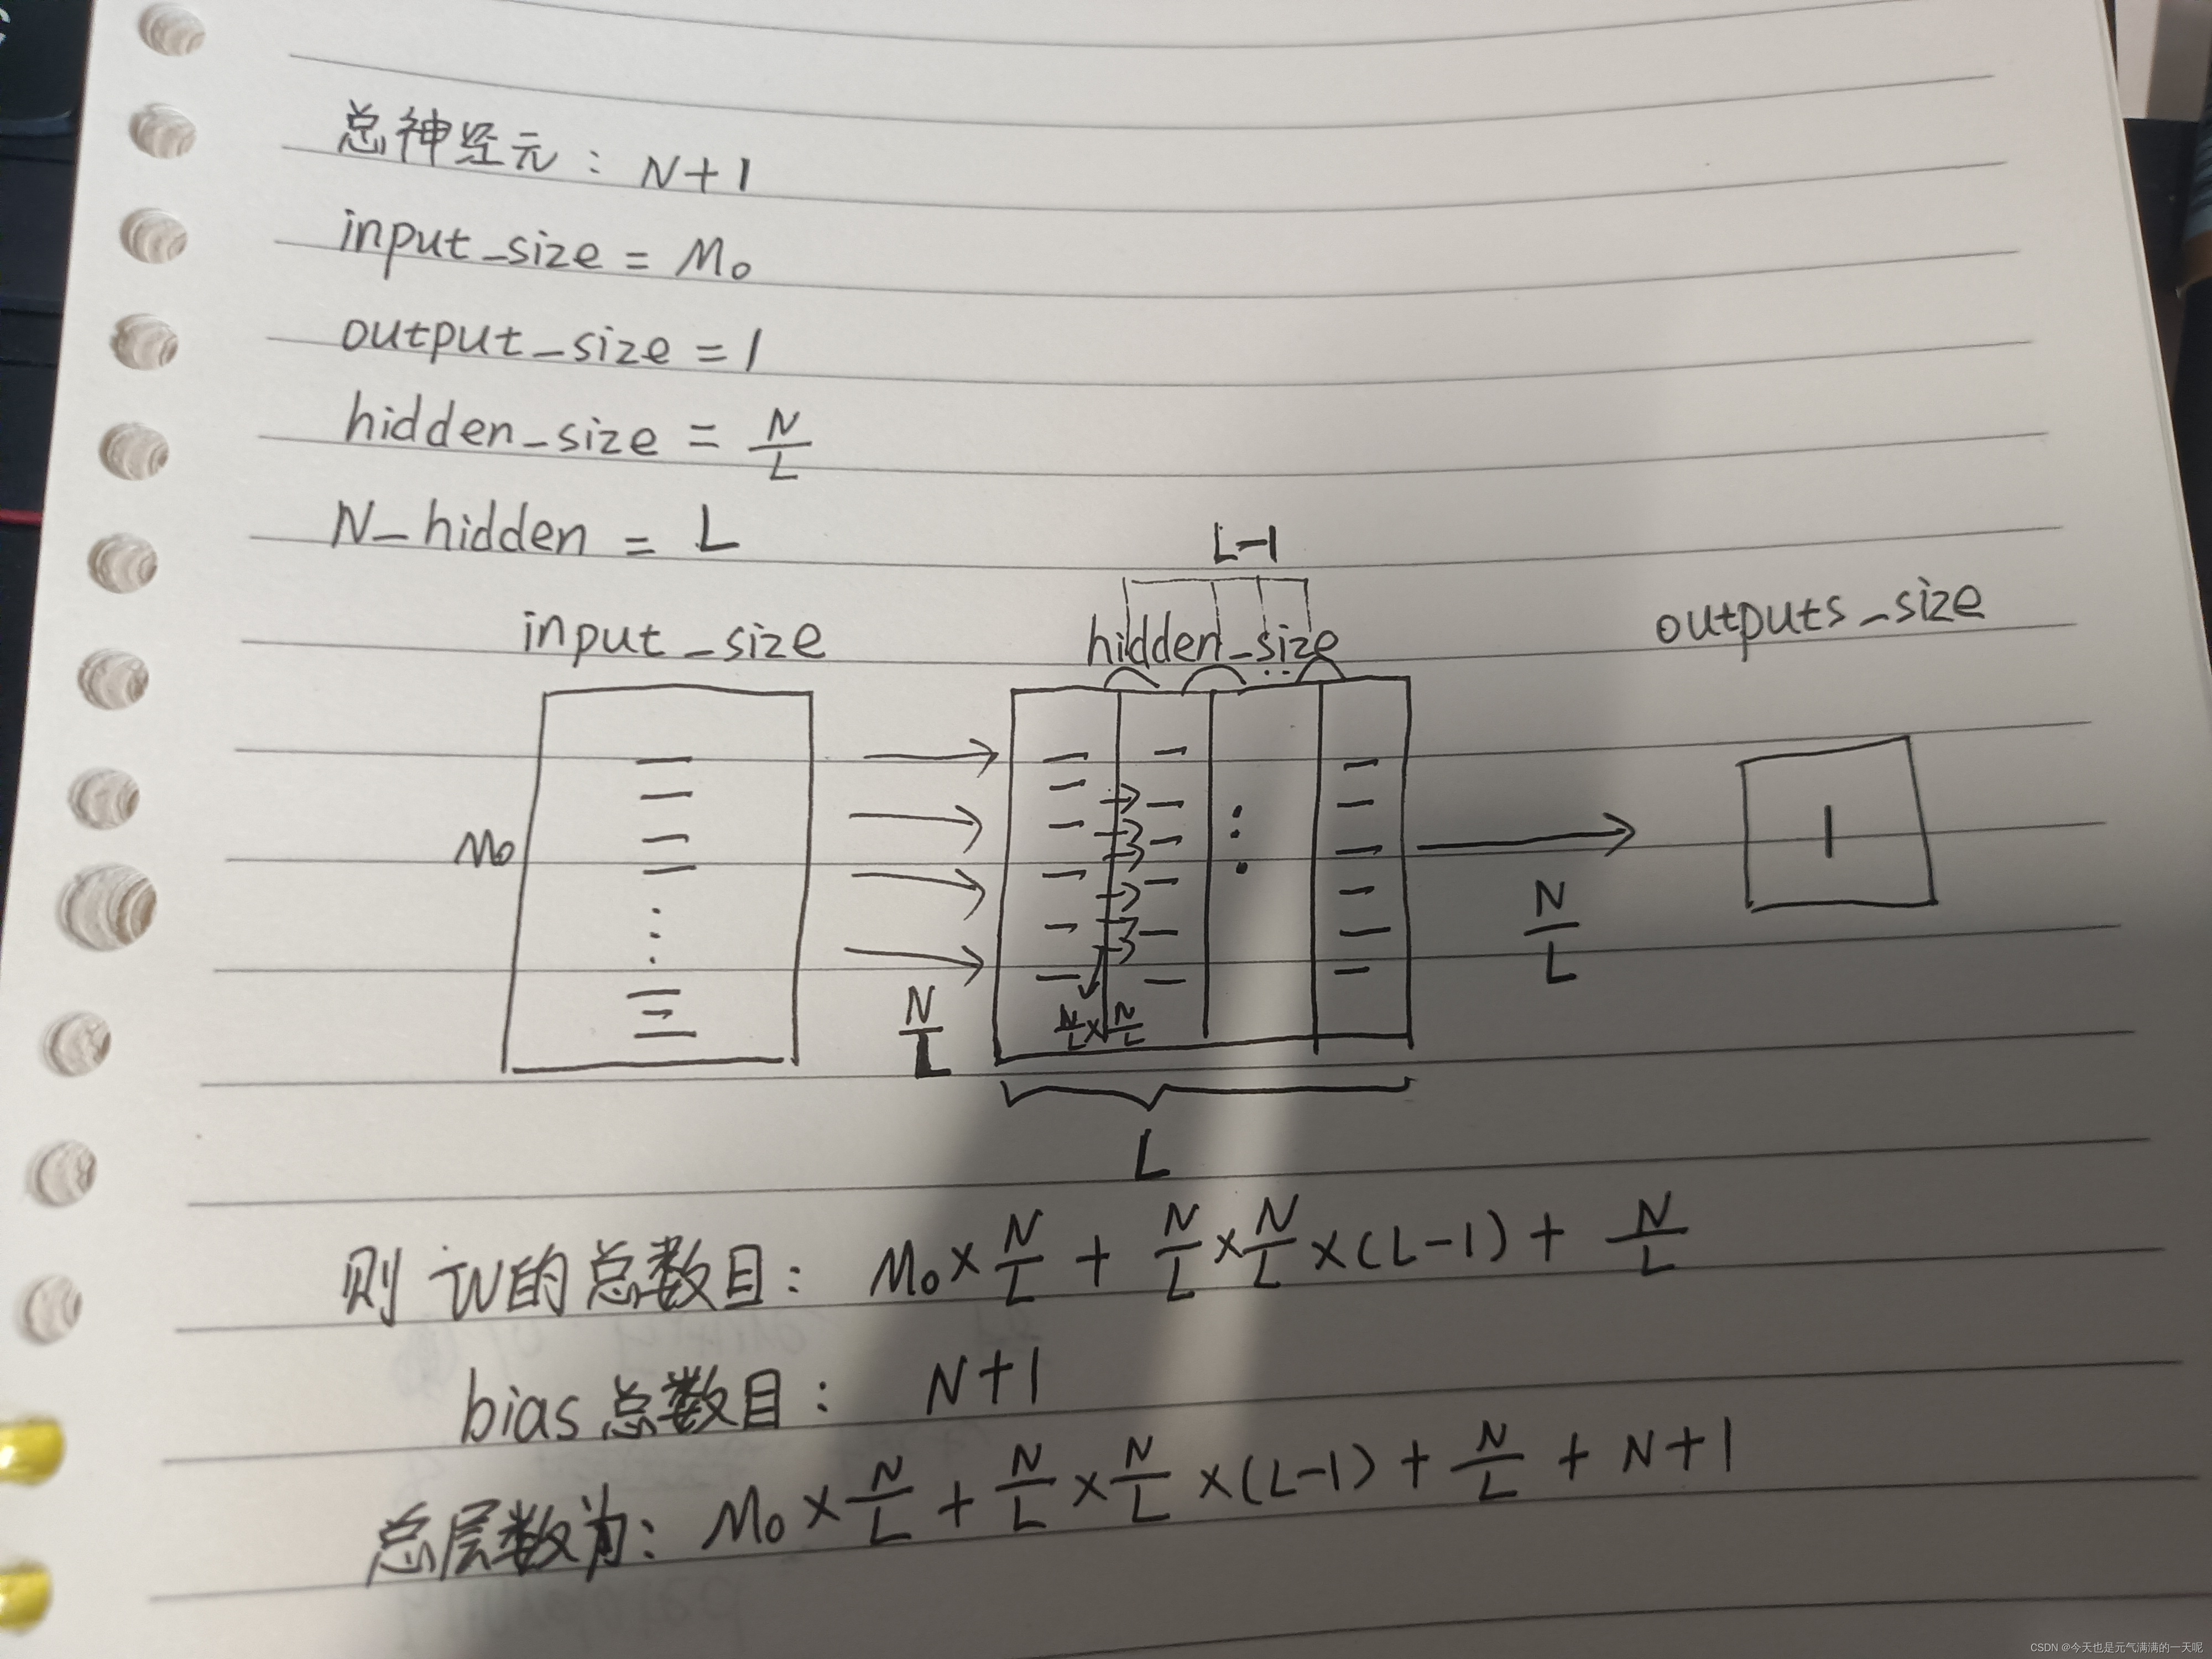 总神经元：N+1
input_size = M₀
output_size = 1
hidden_size = N/L
N_hidden = L
L-1
input_size hidden_size outputs_size
M₀
1
N/L
N/L × N/L
N/L
L
则 W的总数目： M₀ × N/L + N/L × N/L × (L-1) + N/L
bias 总数目： N+1
总层数为： M₀ × N/L + N/L × N/L × (L-1) + N/L + N+1
CSDN @今天也是元气满满的一天呢